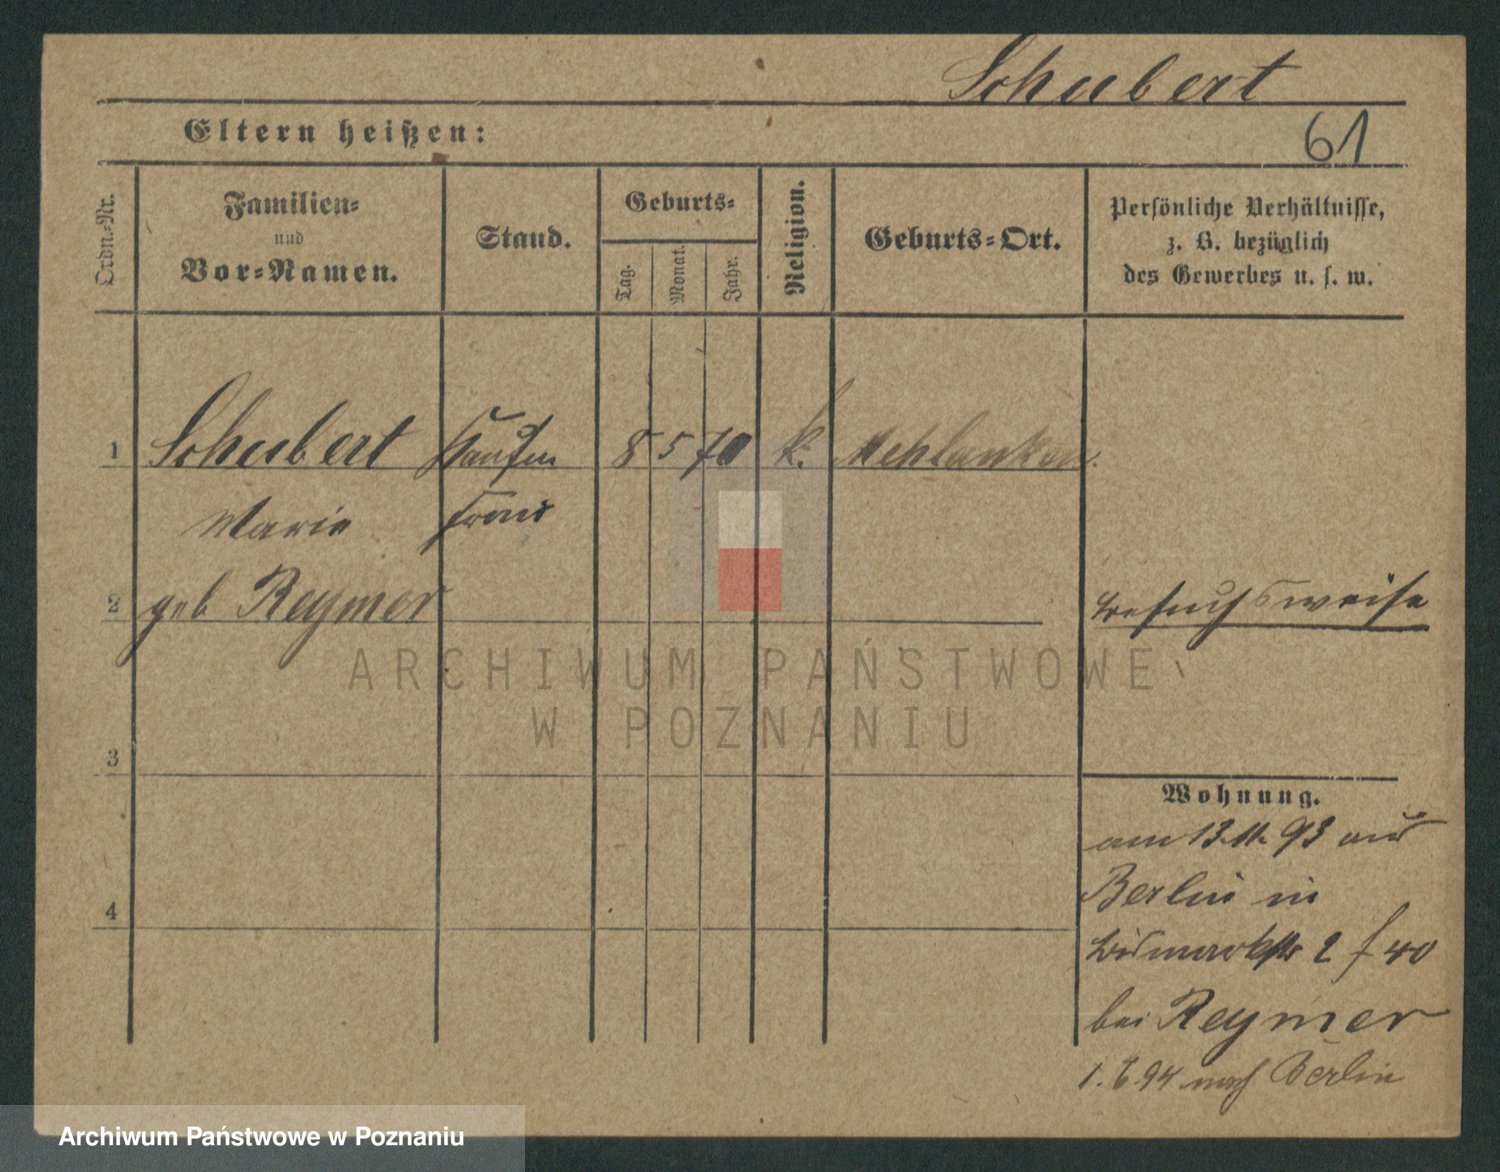 Schubert
Eltern heißen:
61
Ordn.-Nr.
Familien-
und
Vor-Namen.
Stand.
Geburts-
Tag.
Monat.
Jahr.
Religion.
Geburts-Ort.
Persönliche Verhältnisse,
z. B. bezüglich
des Gewerbes u. s. w.
1 Schubert 8 5 70 k. Mehlanken
Marie
2 geb Reymer
besuchsweise
ARCHIWUM PAŃSTWOWE
W POZNANIU
3
Wohnung.
am 13.11.93 aus
Berlin in
4
Bismarckstr 2
bei Reymer
1.6.94 nach Berlin
Archiwum Państwowe w Poznaniu